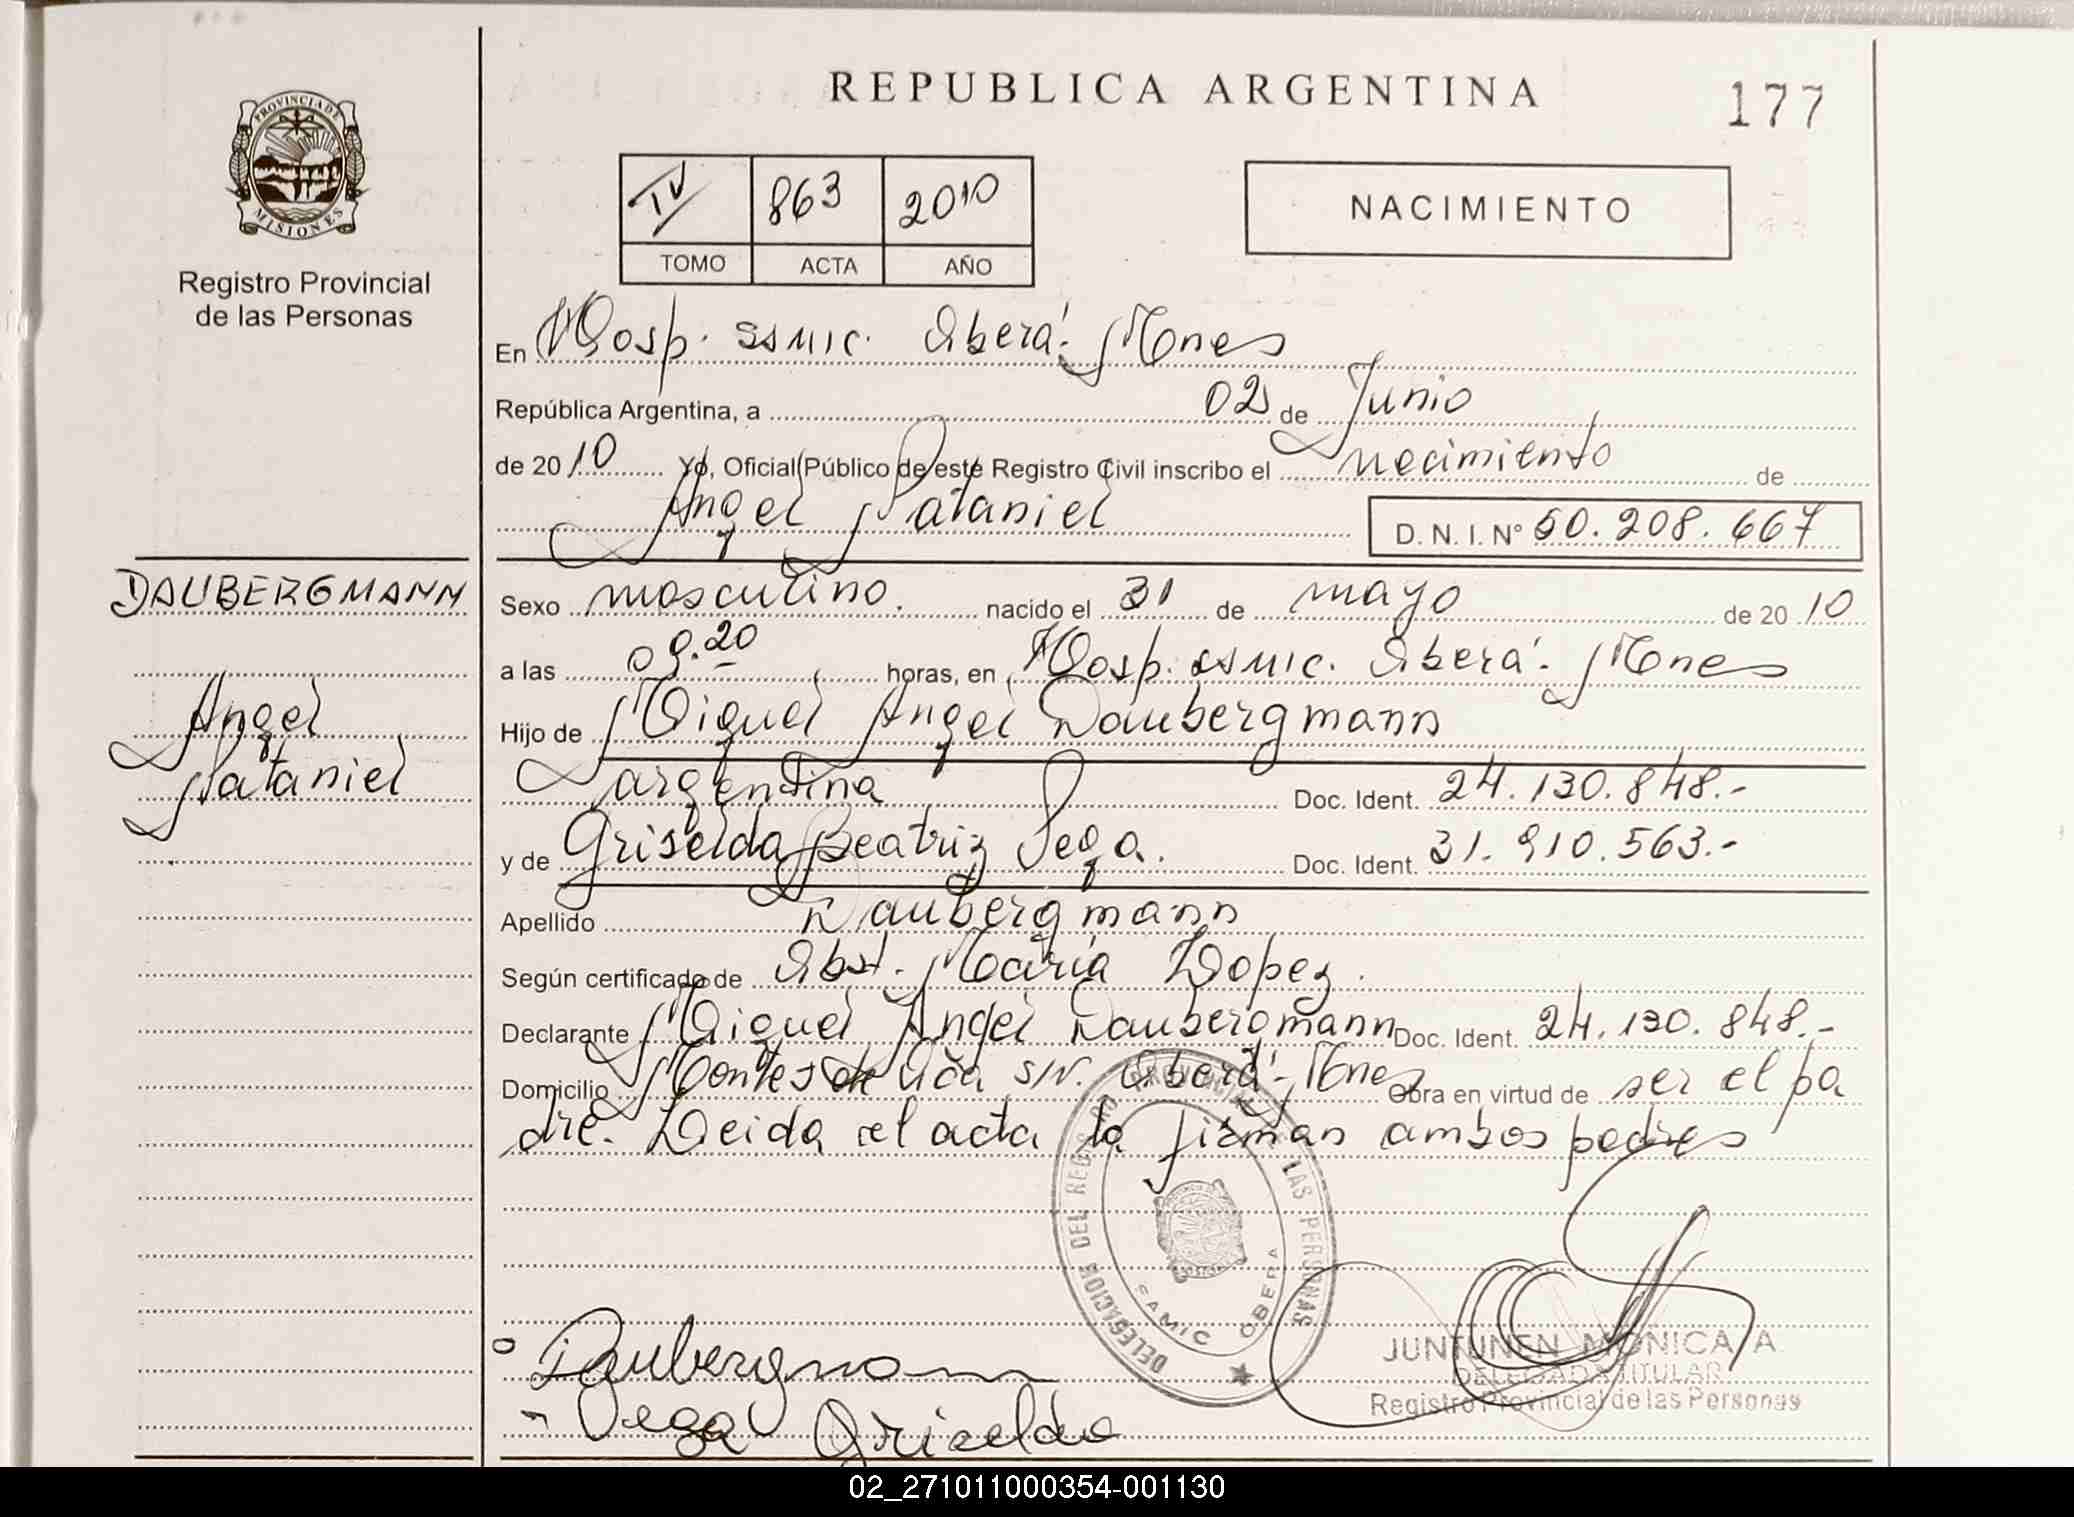 REPUBLICA ARGENTINA
177
PROVINCIA DE
MISIONES
Registro Provincial
de las Personas
IV 863 2010
TOMO ACTA AÑO
NACIMIENTO
En Hosp. SSMIC. Oberá. Mnes
República Argentina, a 02 de Junio
de 2010 Yo, Oficial Público de este Registro Civil inscribo el nacimiento de
Angel Nataniel D. N. I. N° 50.208.667
DAUBERGMANN
Angel
Nataniel
Sexo masculino. nacido el 31 de mayo de 2010
a las 09.20 horas, en Hosp. SSMIC. Oberá. Mnes
Hijo de Miguel Angel Daubergmann
argentina Doc. Ident. 24.130.848.-
y de Griselda Beatriz Vega. Doc. Ident. 31.910.563.-
Apellido Daubergmann
Según certificado de Obst. María Lopez.
Declarante Miguel Angel Daubergmann Doc. Ident. 24.130.848.-
Domicilio Montes de Oca S/N. Oberá-Mnes Obra en virtud de ser el pa
dre. Leida el acta la firman ambos padres
DELEGACION DEL REGISTRO PROVINCIAL DE LAS PERSONAS
SAMIC OBERA
Daubergmann
Vega Griselda
JUNTUNEN MONICA A
DELEGADA TITULAR
Registro Provincial de las Personas
02_271011000354-001130